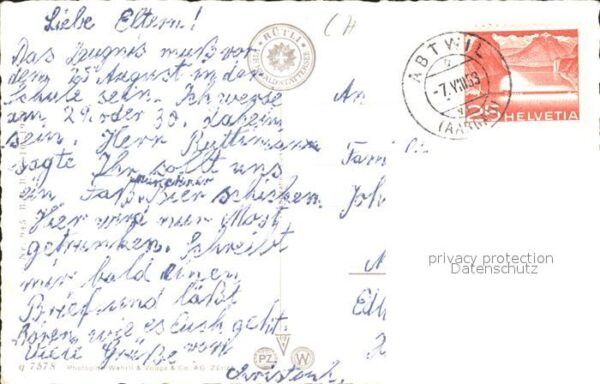 Liebe Eltern!
Das Zeugnis muß vor
dem 25. August in der
Schule sein. Ich werde
am 29. oder 30. daheim
sein. Herr Ruttimann
sagte Ihr sollt uns
ein Faß Münchner Bier schicken.
Hier wird nur Most
getrunken. Schreibt
mir bald einen
Brief und läßt
hören, wie es Euch geht.
Viele Grüße von
Christoph
RÜTLI
CH
ABTWIL
-7.VIII.53
(AARGAU)
25 HELVETIA
An
Fami
Joh
privacy protection
Datenschutz
q 7578 Photogr. Wehrli & Vouga & Co. AG.
PZ W